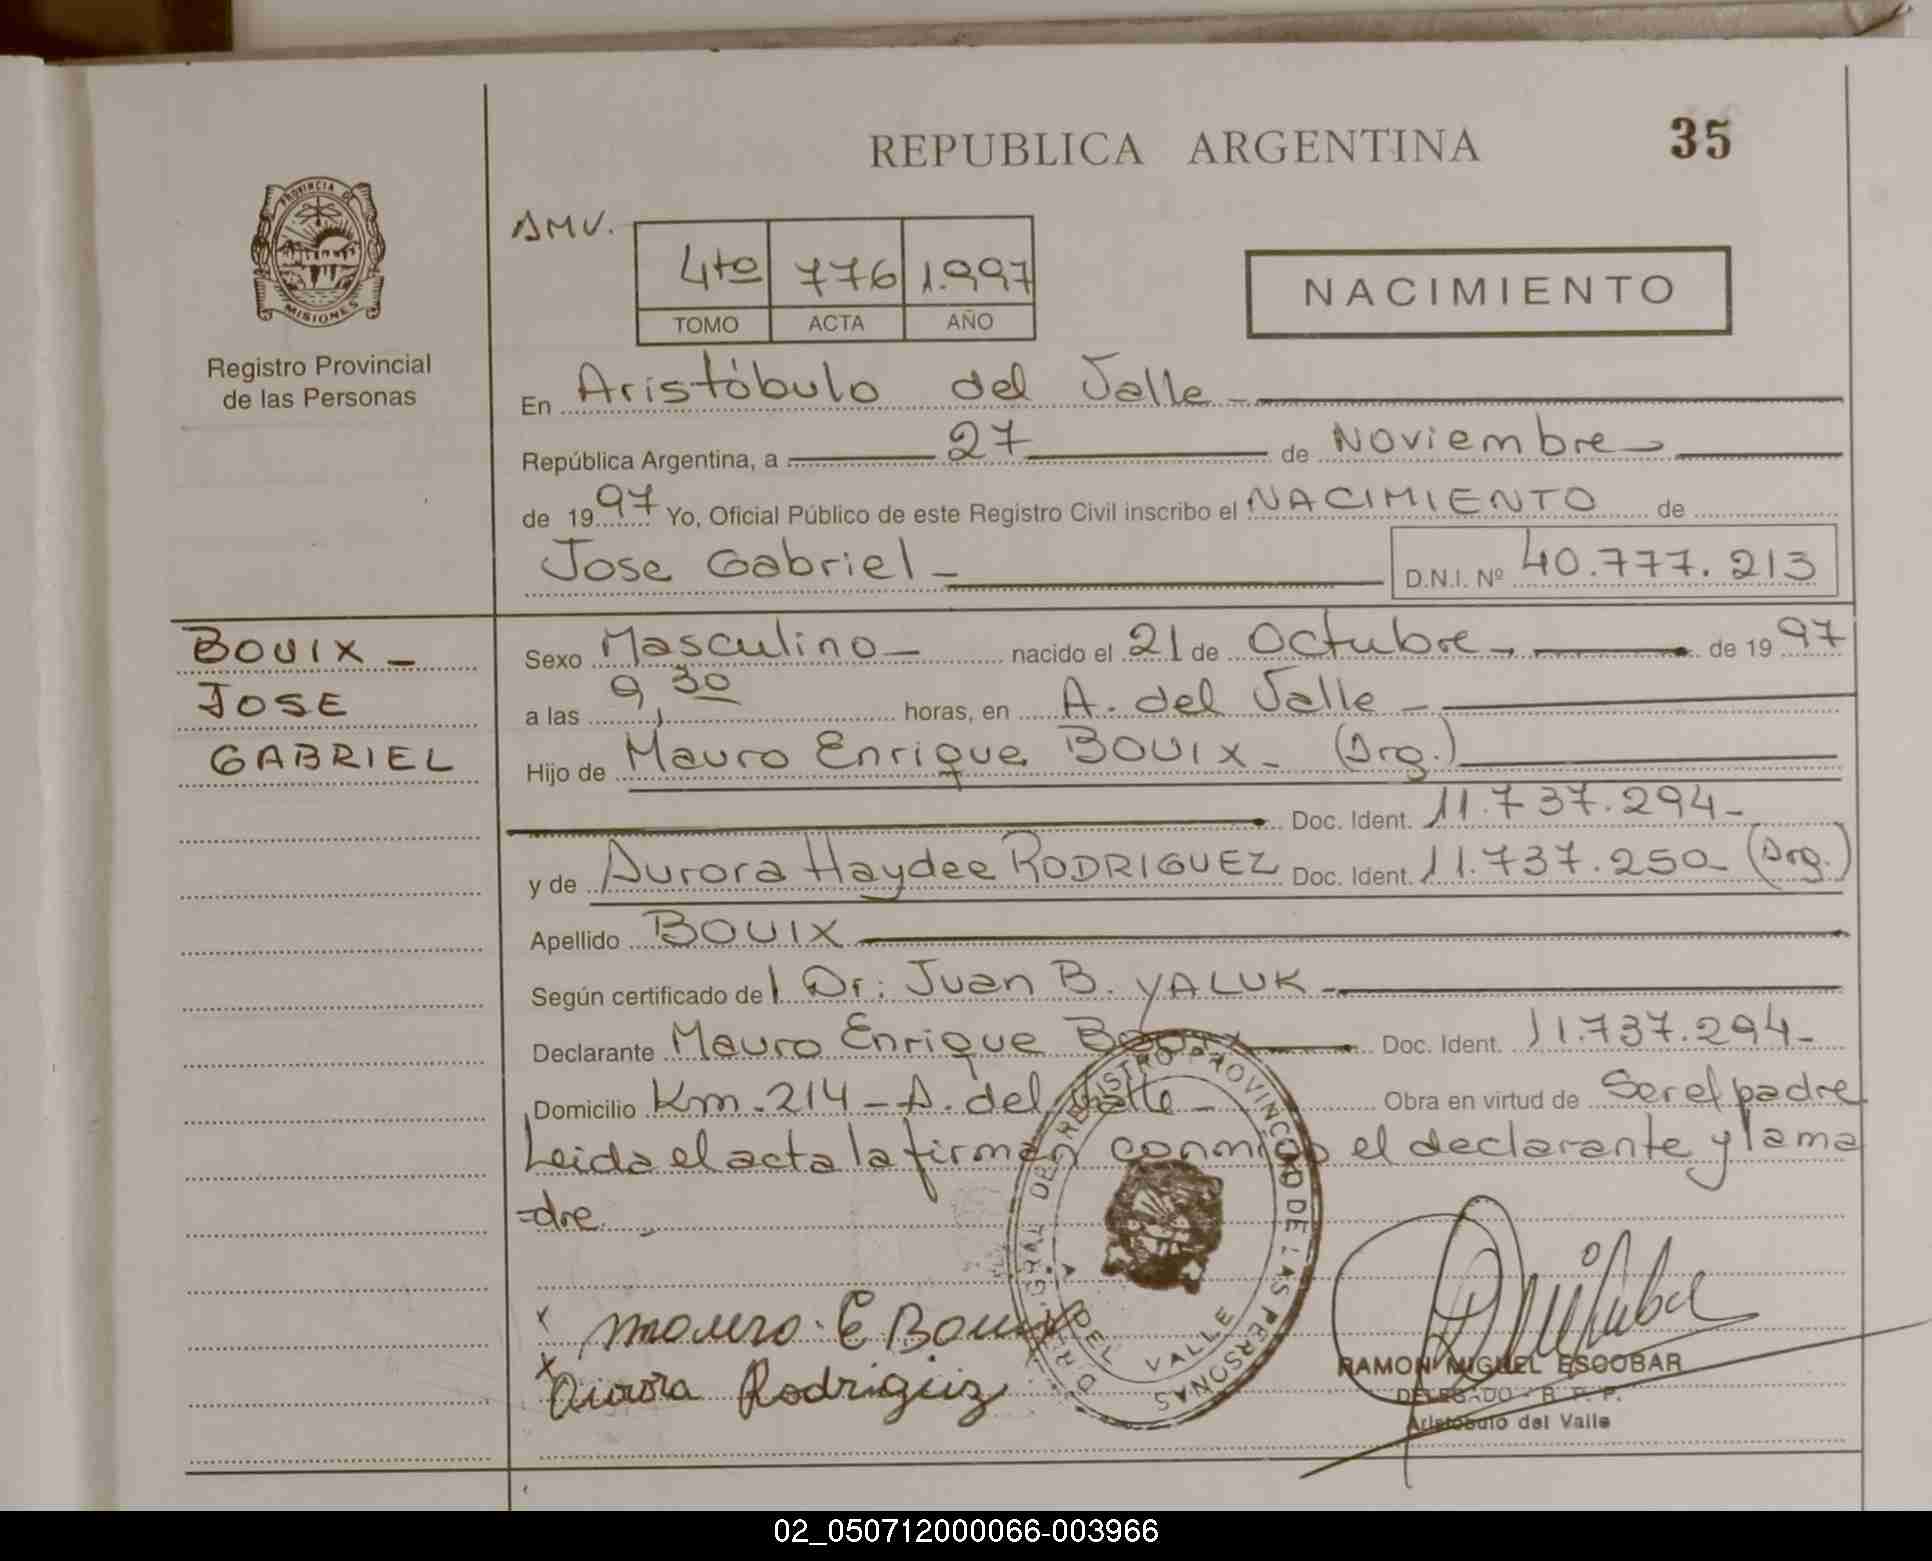 REPUBLICA ARGENTINA
35
PROVINCIA DE
MISIONES
Registro Provincial
de las Personas
AMV.
4to 776 1.997
TOMO ACTA AÑO
NACIMIENTO
En Aristóbulo del Valle
República Argentina, a 27 de Noviembre
de 1997 Yo, Oficial Público de este Registro Civil inscribo el NACIMIENTO de
Jose Gabriel D.N.I. Nº 40.777.213
BOUIX
JOSE
GABRIEL
Sexo Masculino nacido el 21 de Octubre de 1997
a las 9,30 horas, en A. del Valle
Hijo de Mauro Enrique BOUIX (Arg.)
Doc. Ident. 11.737.294
y de Aurora Haydee RODRIGUEZ Doc. Ident. 11.737.250 (Arg.)
Apellido BOUIX
Según certificado del Dr: Juan B. YALUK
Declarante Mauro Enrique Bouix Doc. Ident. 11.737.294
Domicilio Km. 214 - A. del Valle Obra en virtud de Ser el padre
Leida el acta la firman conmigo el declarante y la ma
=dre
DIR. GRAL. DEL REGISTRO PROVINCIAL DE LAS PERSONAS
A. DEL VALLE
x Mauro. E Bouix
x Aurora Rodriguiz
RAMON MIGUEL ESCOBAR
DELEGADO - R. P. P.
Aristobulo del Valle
02_050712000066-003966